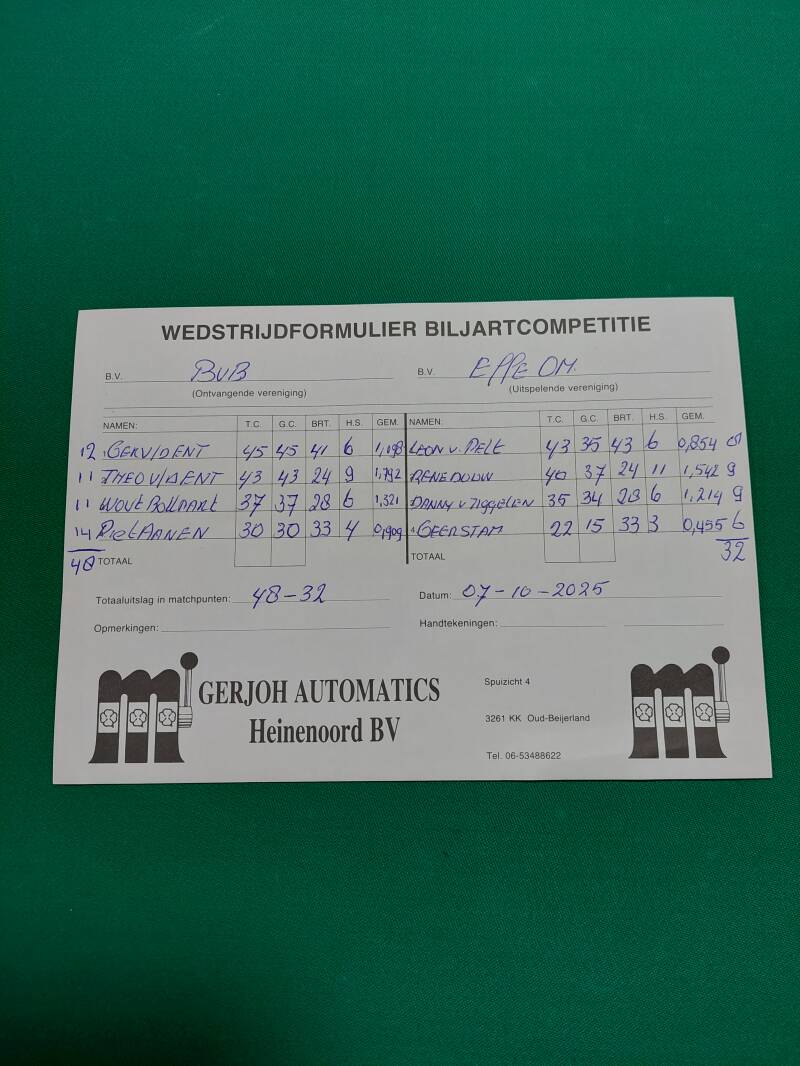 WEDSTRIJDFORMULIER BILJARTCOMPETITIE
B.V. BVB B.V. EFFE OM.
(Ontvangende vereniging) (Uitspelende vereniging)
NAMEN: T.C. G.C. BRT. H.S. GEM. NAMEN: T.C. G.C. BRT. H.S. GEM.
12 GER V/D ENT 45 45 41 6 1,198 LEON v. PELT 43 35 43 6 0,854
11 THEO V/D ENT 43 43 24 9 1,792 RENE DOUW 40 37 24 11 1,542 9
11 WOUT BOLLAART 37 37 28 6 1,321 DANNY v TIGGELEN 35 34 28 6 1,214 9
14 Piet AANEN 30 30 33 4 0,909 GEERSTAM 22 15 33 3 0,455 6
48 TOTAAL TOTAAL 32
Totaaluitslag in matchpunten: 48-32 Datum: 07-10-2025
Opmerkingen: Handtekeningen:
GERJOH AUTOMATICS
Heinenoord BV
Spuizicht 4
3261 KK Oud-Beijerland
Tel. 06-53488622